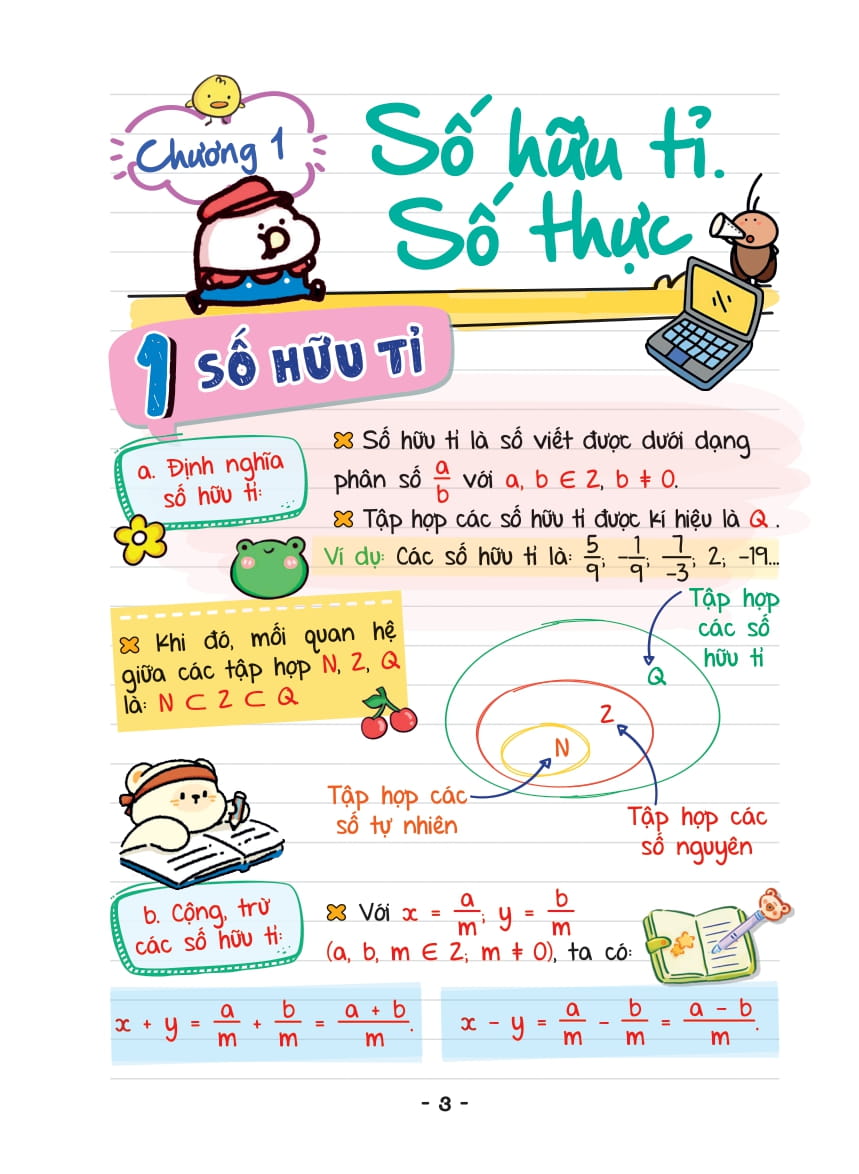 Chương 1
Số hữu tỉ.
Số thực
1 SỐ HỮU TỈ
a. Định nghĩa
số hữu tỉ:
Số hữu tỉ là số viết được dưới dạng
phân số a/b với a, b ∈ Z, b ≠ 0.
Tập hợp các số hữu tỉ được kí hiệu là Q.
Ví dụ: Các số hữu tỉ là: 5/9; -1/9; 7/-3; 2; -19...
Khi đó, mối quan hệ
giữa các tập hợp N, Z, Q
là: N ⊂ Z ⊂ Q
Tập hợp
các số
hữu tỉ
Q
Z
N
Tập hợp các
số tự nhiên
Tập hợp các
số nguyên
b. Cộng, trừ
các số hữu tỉ:
Với x = a/m; y = b/m
(a, b, m ∈ Z; m ≠ 0), ta có:
x + y = a/m + b/m = (a + b)/m.
x - y = a/m - b/m = (a - b)/m.
- 3 -